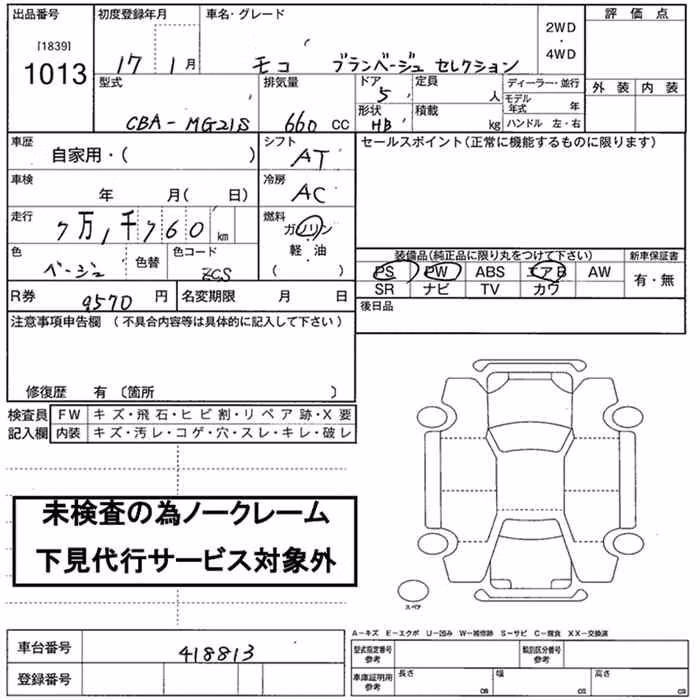 出品番号 初度登録年月 車名・グレード 評価点
[1839]
1013 17 1月 モコ ブランベージュ セレクション 2WD・4WD
型式 排気量 ドア 定員 ディーラー・並行 外装 内装
CBA-MG21S 660 CC 5 人 モデル年式 年
形状 積載 ハンドル 左・右
HB kg
車歴 シフト セールスポイント(正常に機能するものに限ります)
自家用・( ) AT
車検 冷房
年 月( 日) AC
走行 燃料
7万,千760 km ガソリン
色 色替 色コード 軽・油
ベージュ ZCS ( )
装備品(純正品に限り丸をつけて下さい) 新車保証書
PS PW ABS エアB AW 有・無
SR ナビ TV カワ
R券 9570 円 名変期限 月 日 後日品
注意事項申告欄 (不具合内容等は具体的に記入して下さい)
修復歴 有 〔箇所 〕
検査員 FW キズ・飛石・ヒビ割・リペア跡・X要
記入欄 内装 キズ・汚レ・コゲ・穴・スレ・キレ・破レ
未検査の為ノークレーム
下見代行サービス対象外
スペア
A-キズ E-エクボ U-凹み W-補修跡 S-サビ C-腐食 XX-交換済
車台番号 418813 型式指定番号 参考 類別区分番号 参考
登録番号 車庫証明用 参考 長さ cm 幅 cm 高さ cm